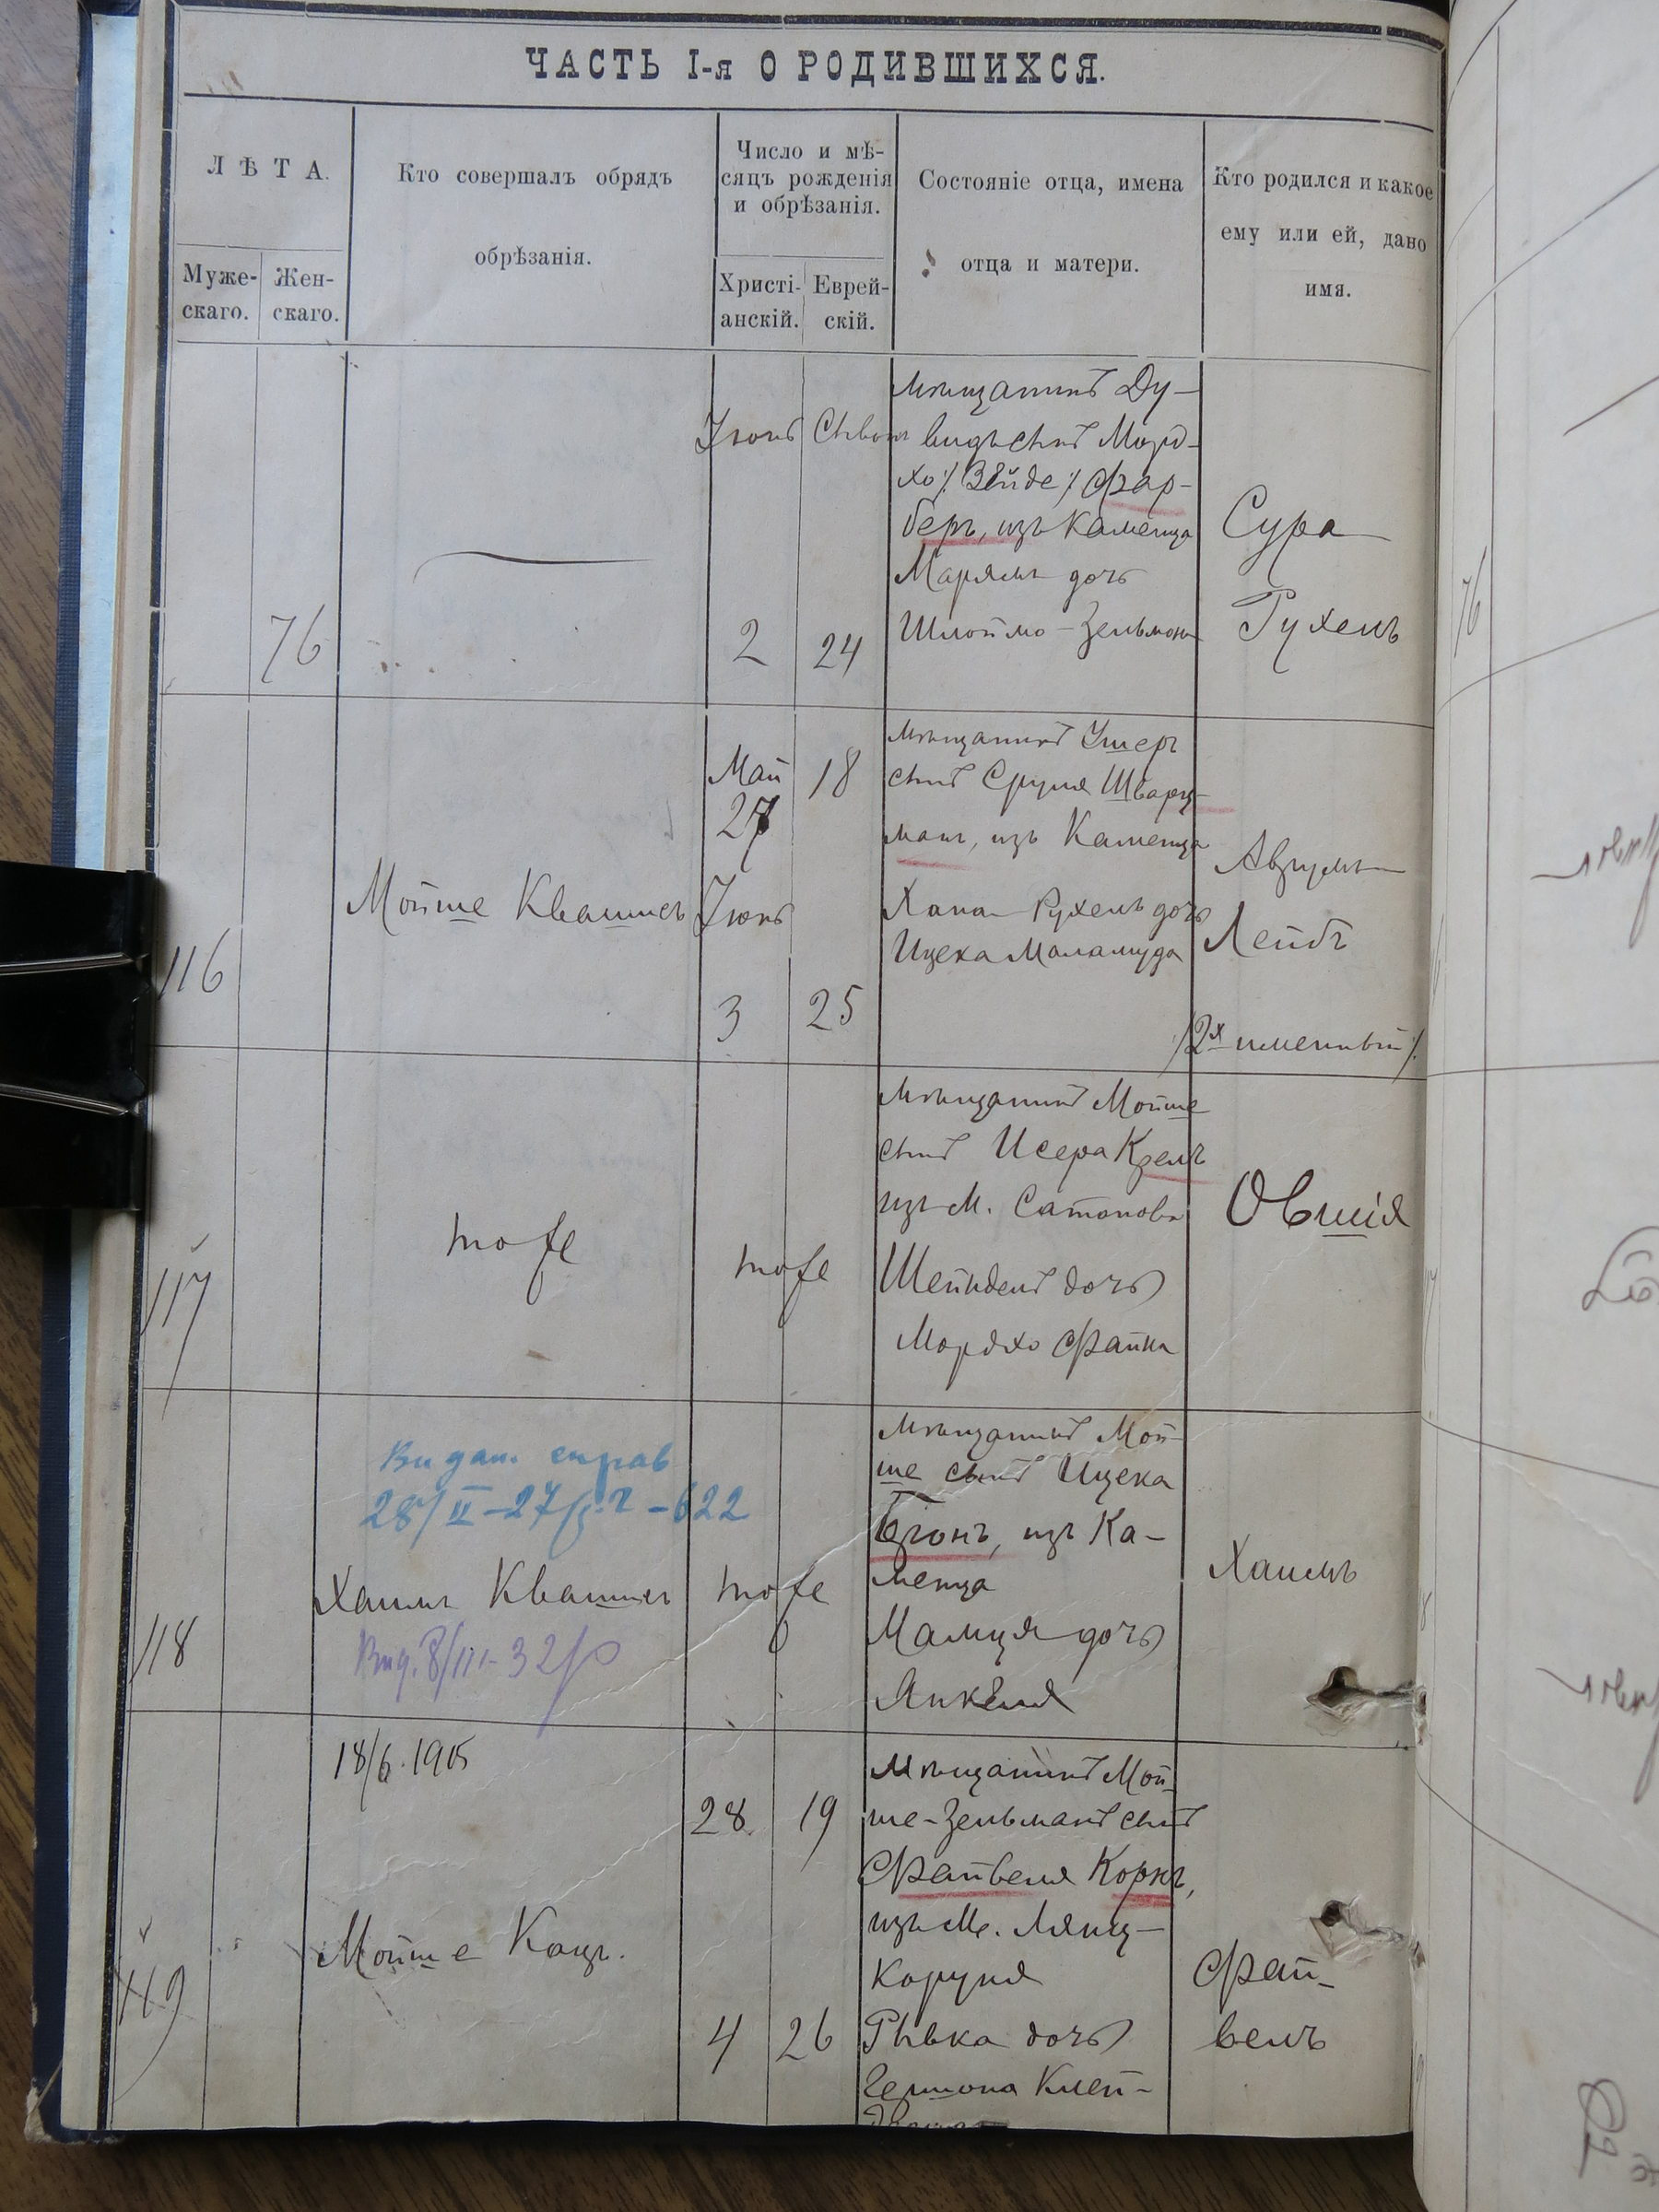 ЧАСТЬ I-я О РОДИВШИХСЯ.
ЛѢТА.
Муже-
скаго.
Жен-
скаго.
Кто совершалъ обрядъ
обрѣзанія.
Число и мѣ-
сяцъ рожденія
и обрѣзанія.
Христі-
анскій.
Еврей-
скій.
Состояніе отца, имена
отца и матери.
Кто родился и какое
ему или ей, дано
имя.
76
Іюнь
2
24
мѣщанинъ Ду-
видъ сынъ Морд-
хо /Зейде/ Фар-
беръ, изъ Каменца
Марямъ дочь
Шлоймо-Зельмона
Сура
Рухель
76
116
Мойше Квашнеъ
Май 18
27
Іюнь
3 25
мѣщанинъ Ушеръ
сынъ Сруля Шварц-
манъ, изъ Каменца
Хана-Рухель дочь
Ицека Маламуда
Аврумъ
Лейбъ
/2х именный/.
117
тоже
тоже
мѣщанинъ Мойше
сынъ Исера
изъ М. Сатанова
Шейндель дочь
Мордхо Файна
Овшія
118
Видан. справ
28/II-27 р. г - 622
Хаимъ
Вид. 8/III-32 р
тоже
мѣщанинъ Мой-
ше сынъ Ицека
изъ Ка-
менца
Малця дочь
Янкеля
Хаимъ
119
18/6.1915
Мойше Кацъ.
28 19
4 26
мѣщанинъ Мой-
ше-Зельманъ сынъ
Файвеля Коркъ,
изъ М. Лянц-
коруня
Рывка дочь
Гершона Клей-
Фай-
вель